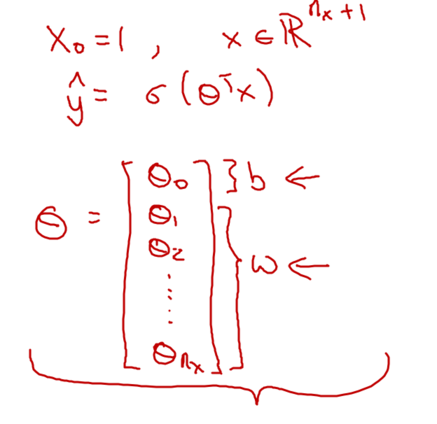 x₀ = 1 , x ∈ ℝⁿˣ⁺¹
ŷ = σ(θᵀx)
θ = [ θ₀ } b ←
θ₁
θ₂ } w ←
⋮
θₙₓ ]